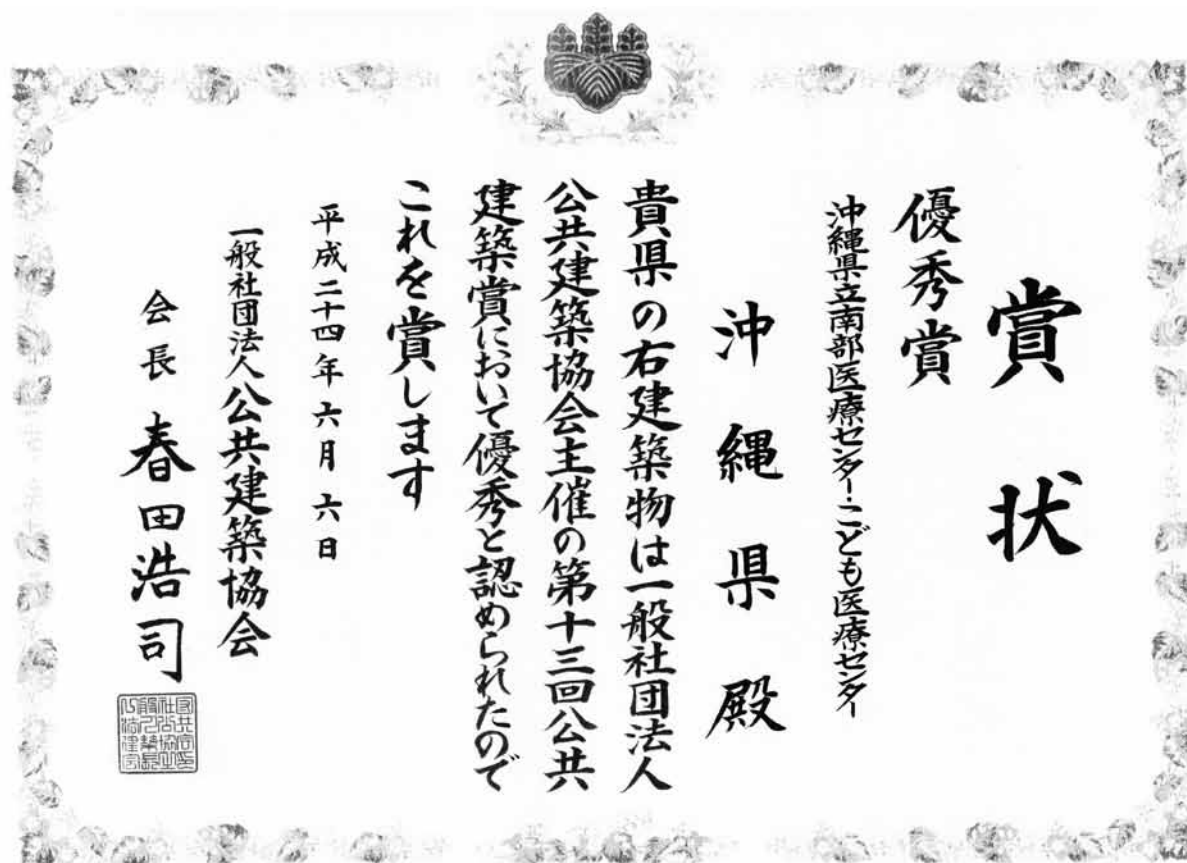 賞状
優秀賞
沖縄県立南部医療センター・こども医療センター
沖縄県殿
貴県の右建築物は一般社団法人
公共建築協会主催の第十三回公共
建築賞において優秀と認められたので
これを賞します
平成二十四年六月六日
一般社団法人公共建築協会
会長 春田浩司